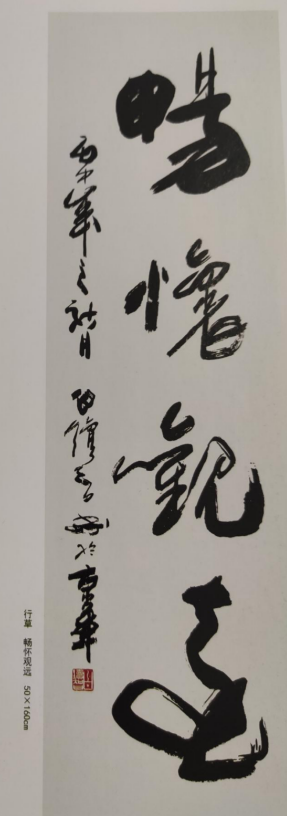 暢懷觀遠
丙申年之秋月
於京華
行草 畅怀观远 50×160cm